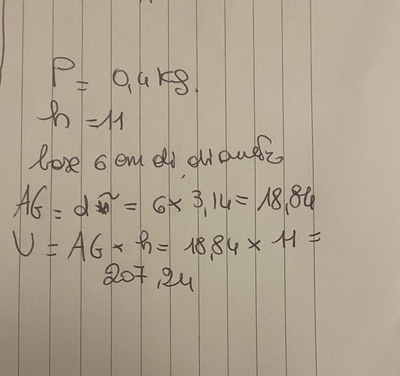 P = 0,4 kg.
h = 11
base 6 cm di diametro
AG = d π = 6 x 3,14 = 18,84
V = AG x h = 18,84 x 11 =
207,24